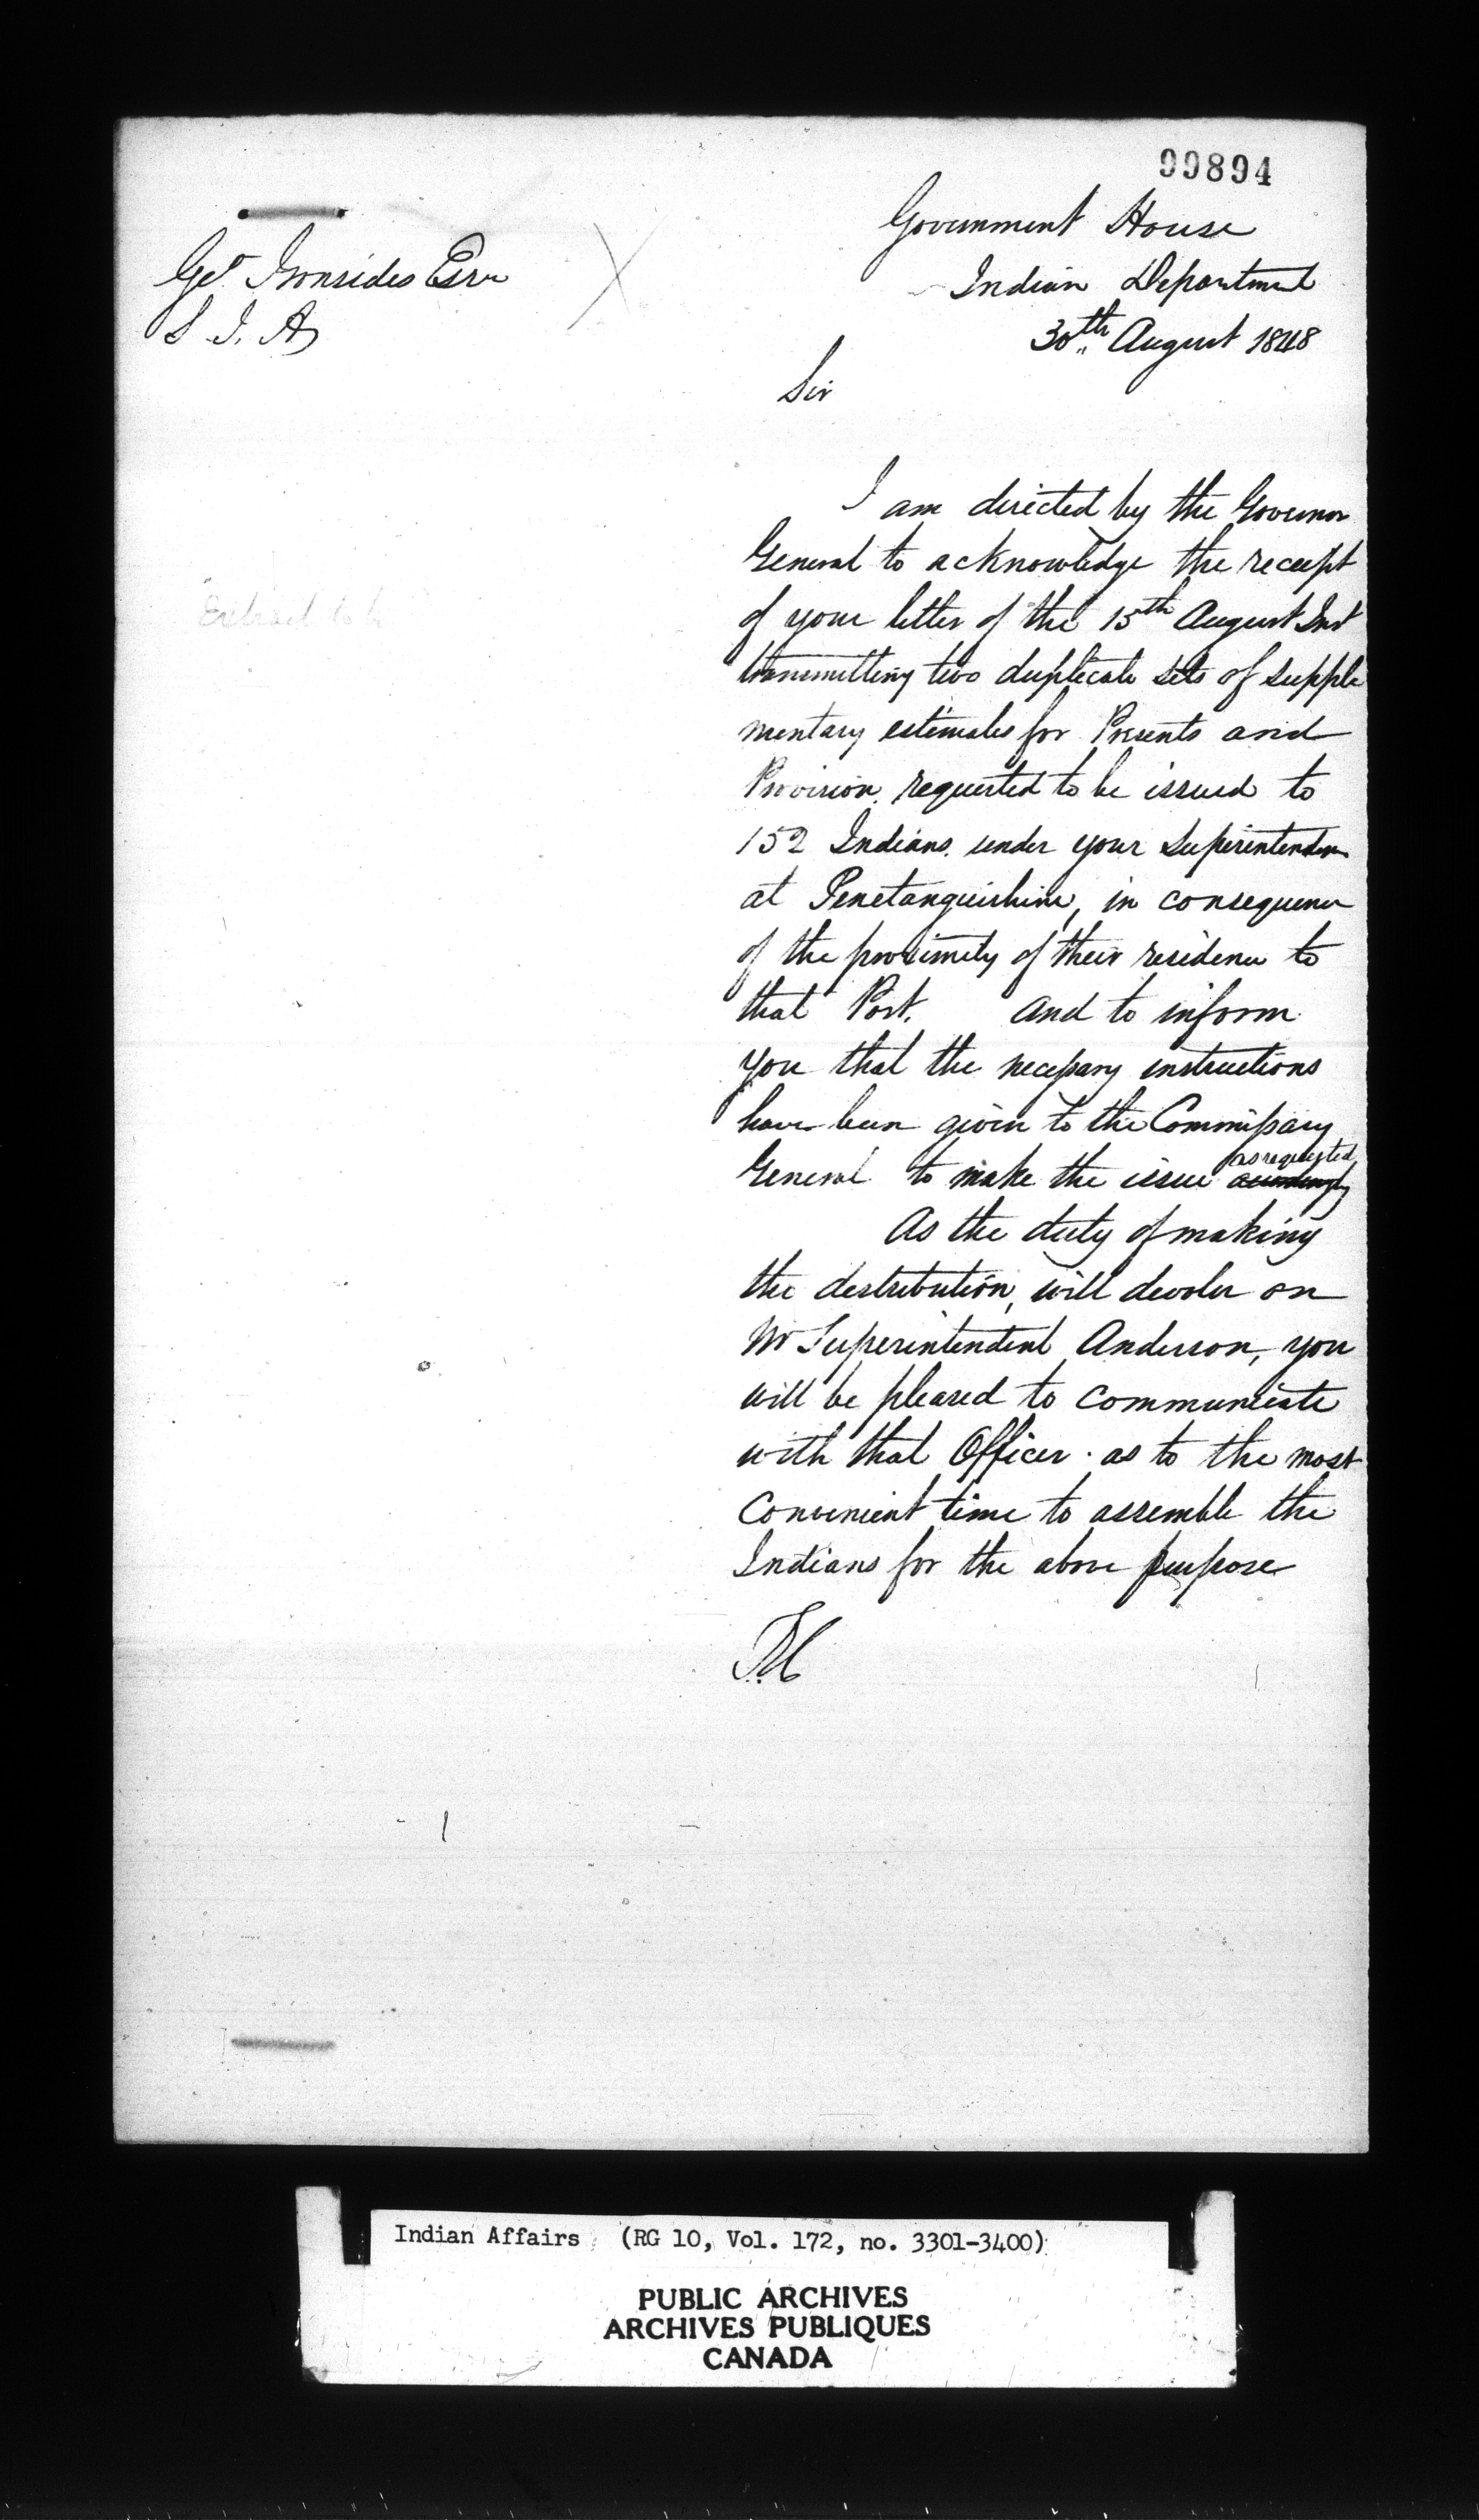 99894
Government House
Indian Department
30th August 1848
Geo Ironsides Esqr
S I. A
Sir
I am directed by the Governor
General to acknowledge the receipt
of your letter of the 15th August Inst
transmitting two duplicate sets of supple
mentary estimates for Presents and
Provision requested to be issued to
152 Indians under your Superintenden
at Penetanguishine, in consequence
of the proximity of their residence to
that Post. and to inform
you that the necessary instructions
have been given to the Commissary
General to make the issue accordingly as requested
As the duty of making
the destribution, will devolve on
Mr Superintendent Anderson, you
will be pleased to communicate
with that Officer as to the most
convenient time to assemble the
Indians for the above purpose
Extract to be
Indian Affairs (RG 10, Vol. 172, no. 3301-3400)
PUBLIC ARCHIVES
ARCHIVES PUBLIQUES
CANADA